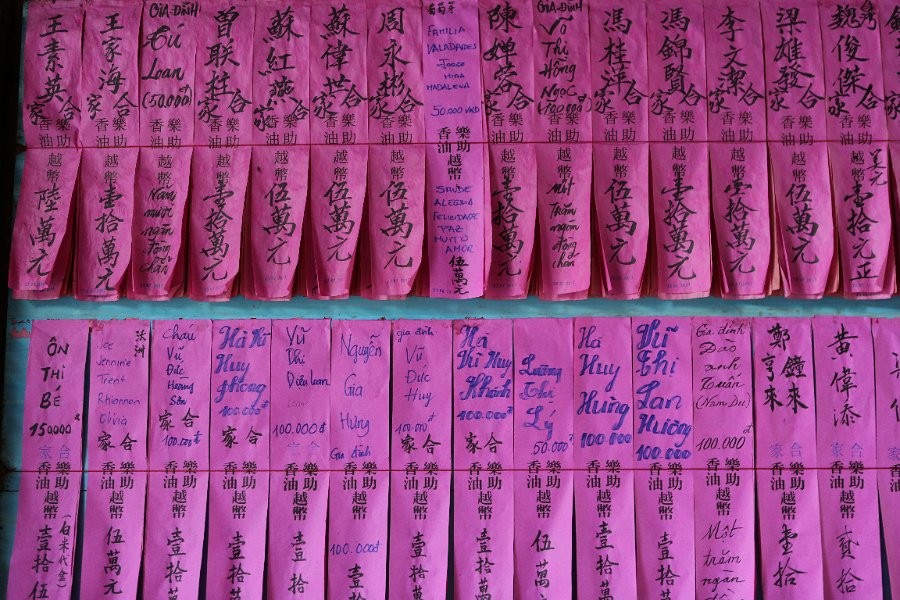 王素英合家
香油樂助
越幣
陸萬元
王家海合家
香油樂助
越幣
壹拾萬元
GIA-ĐÌNH
Loan
(50.000đ)
香油樂助
越幣
Năm
mươi
ngàn
đồng
chẵn
曾联桂合家
香油樂助
越幣
壹拾萬元
蘇紅燕合家
香油樂助
越幣
伍萬元
蘇偉世合家
香油樂助
越幣
伍萬元
周永彬合家
香油樂助
越幣
伍萬元
葡萄牙
FAMILIA
VALADARES
JORGE
MIRA
MADALENA
50.000 VND
香油樂助
越幣
SAUDE
ALEGRIA
FELICIDADE
PAZ
MUITO
AMOR
伍萬元
陳嬋蓉合家
香油樂助
越幣
壹拾萬元
GIA-ĐÌNH
Võ
Thị
Hồng
Ngọc
(100.000đ)
香油樂助
越幣
Một
Trăm
ngàn
đồng
chẵn
馮桂萍合家
香油樂助
越幣
伍萬元
馮錦賢合家
香油樂助
越幣
壹拾萬元
李文潔合家
香油樂助
越幣
壹拾萬元
梁雄發合家
香油樂助
越幣
伍萬元
魏俊傑合家
香油樂助
越幣
美元
壹拾萬元正
ÔN
THỊ
BÉ
150000đ
合家
香油樂助
越幣
(白米代金)
壹拾伍
張洲
Lee
Jennine
Trent
Rhiannon
Olivia
合家
香油樂助
越幣
伍萬元
Cháu
Vũ
Đức
Hương
Sơn
合家
100.000đ
香油樂助
越幣
壹拾
Hà Vĩ
Huy
Phong
100.000đ
合家
香油樂助
越幣
壹拾萬
Vũ
Thị
Diệu Loan
100.000đ
香油樂助
越幣
壹拾
Nguyễn
Gia
Hưng
Gia đình
香油樂助
越幣
100.000đ
壹
gia đình
Vũ
Đức
Huy
100.000đ
合家
香油樂助
越幣
壹拾
Hà
Vĩ Huy
Khánh
100.000đ
合家
香油樂助
越幣
壹拾萬
Lương
Thị
Lý
50.000đ
合家
香油樂助
越幣
伍萬
Hà
Huy
Hùng
100.000
香油樂助
越幣
壹拾萬
Vũ
Thị
Lan
Hương
100.000
香油樂助
越幣
壹拾
Gia đình
Đào
anh
Tuấn
100.000đ
合家
香油樂助
越幣
Một
trăm
ngàn
鄭亨鐘來來
合家
香油樂助
越幣
壹拾
黃偉添
合家
香油樂助
越幣
貳拾